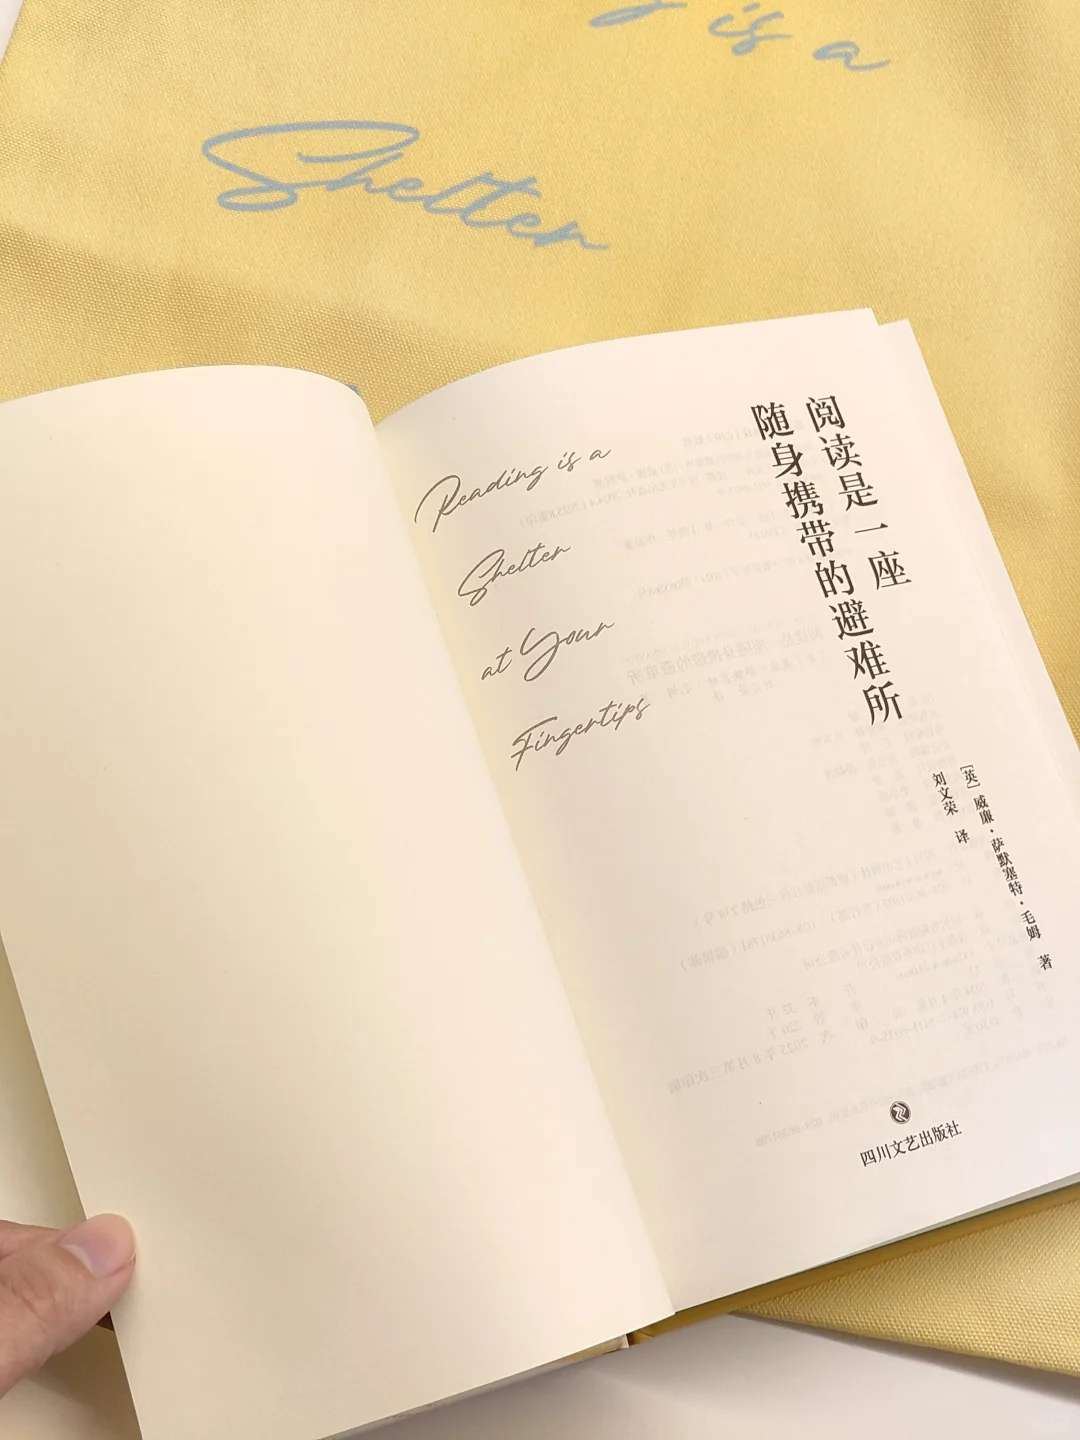 is a
Shelter
Reading is a
Shelter
at Your
Fingertips
阅读是一座
随身携带的避难所
[英] 威廉·萨默塞特·毛姆 著
刘文荣 译
四川文艺出版社